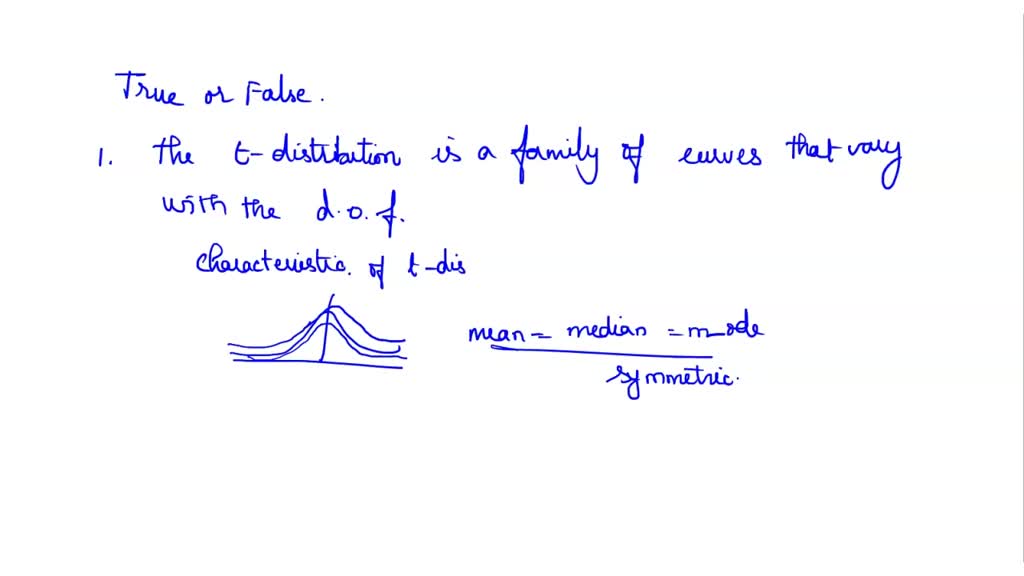 True or False.
1. the t-distribution is a family of curves that vary
with the d.o.f.
characteristic. of t-dis
mean = median = mode
symmetric.